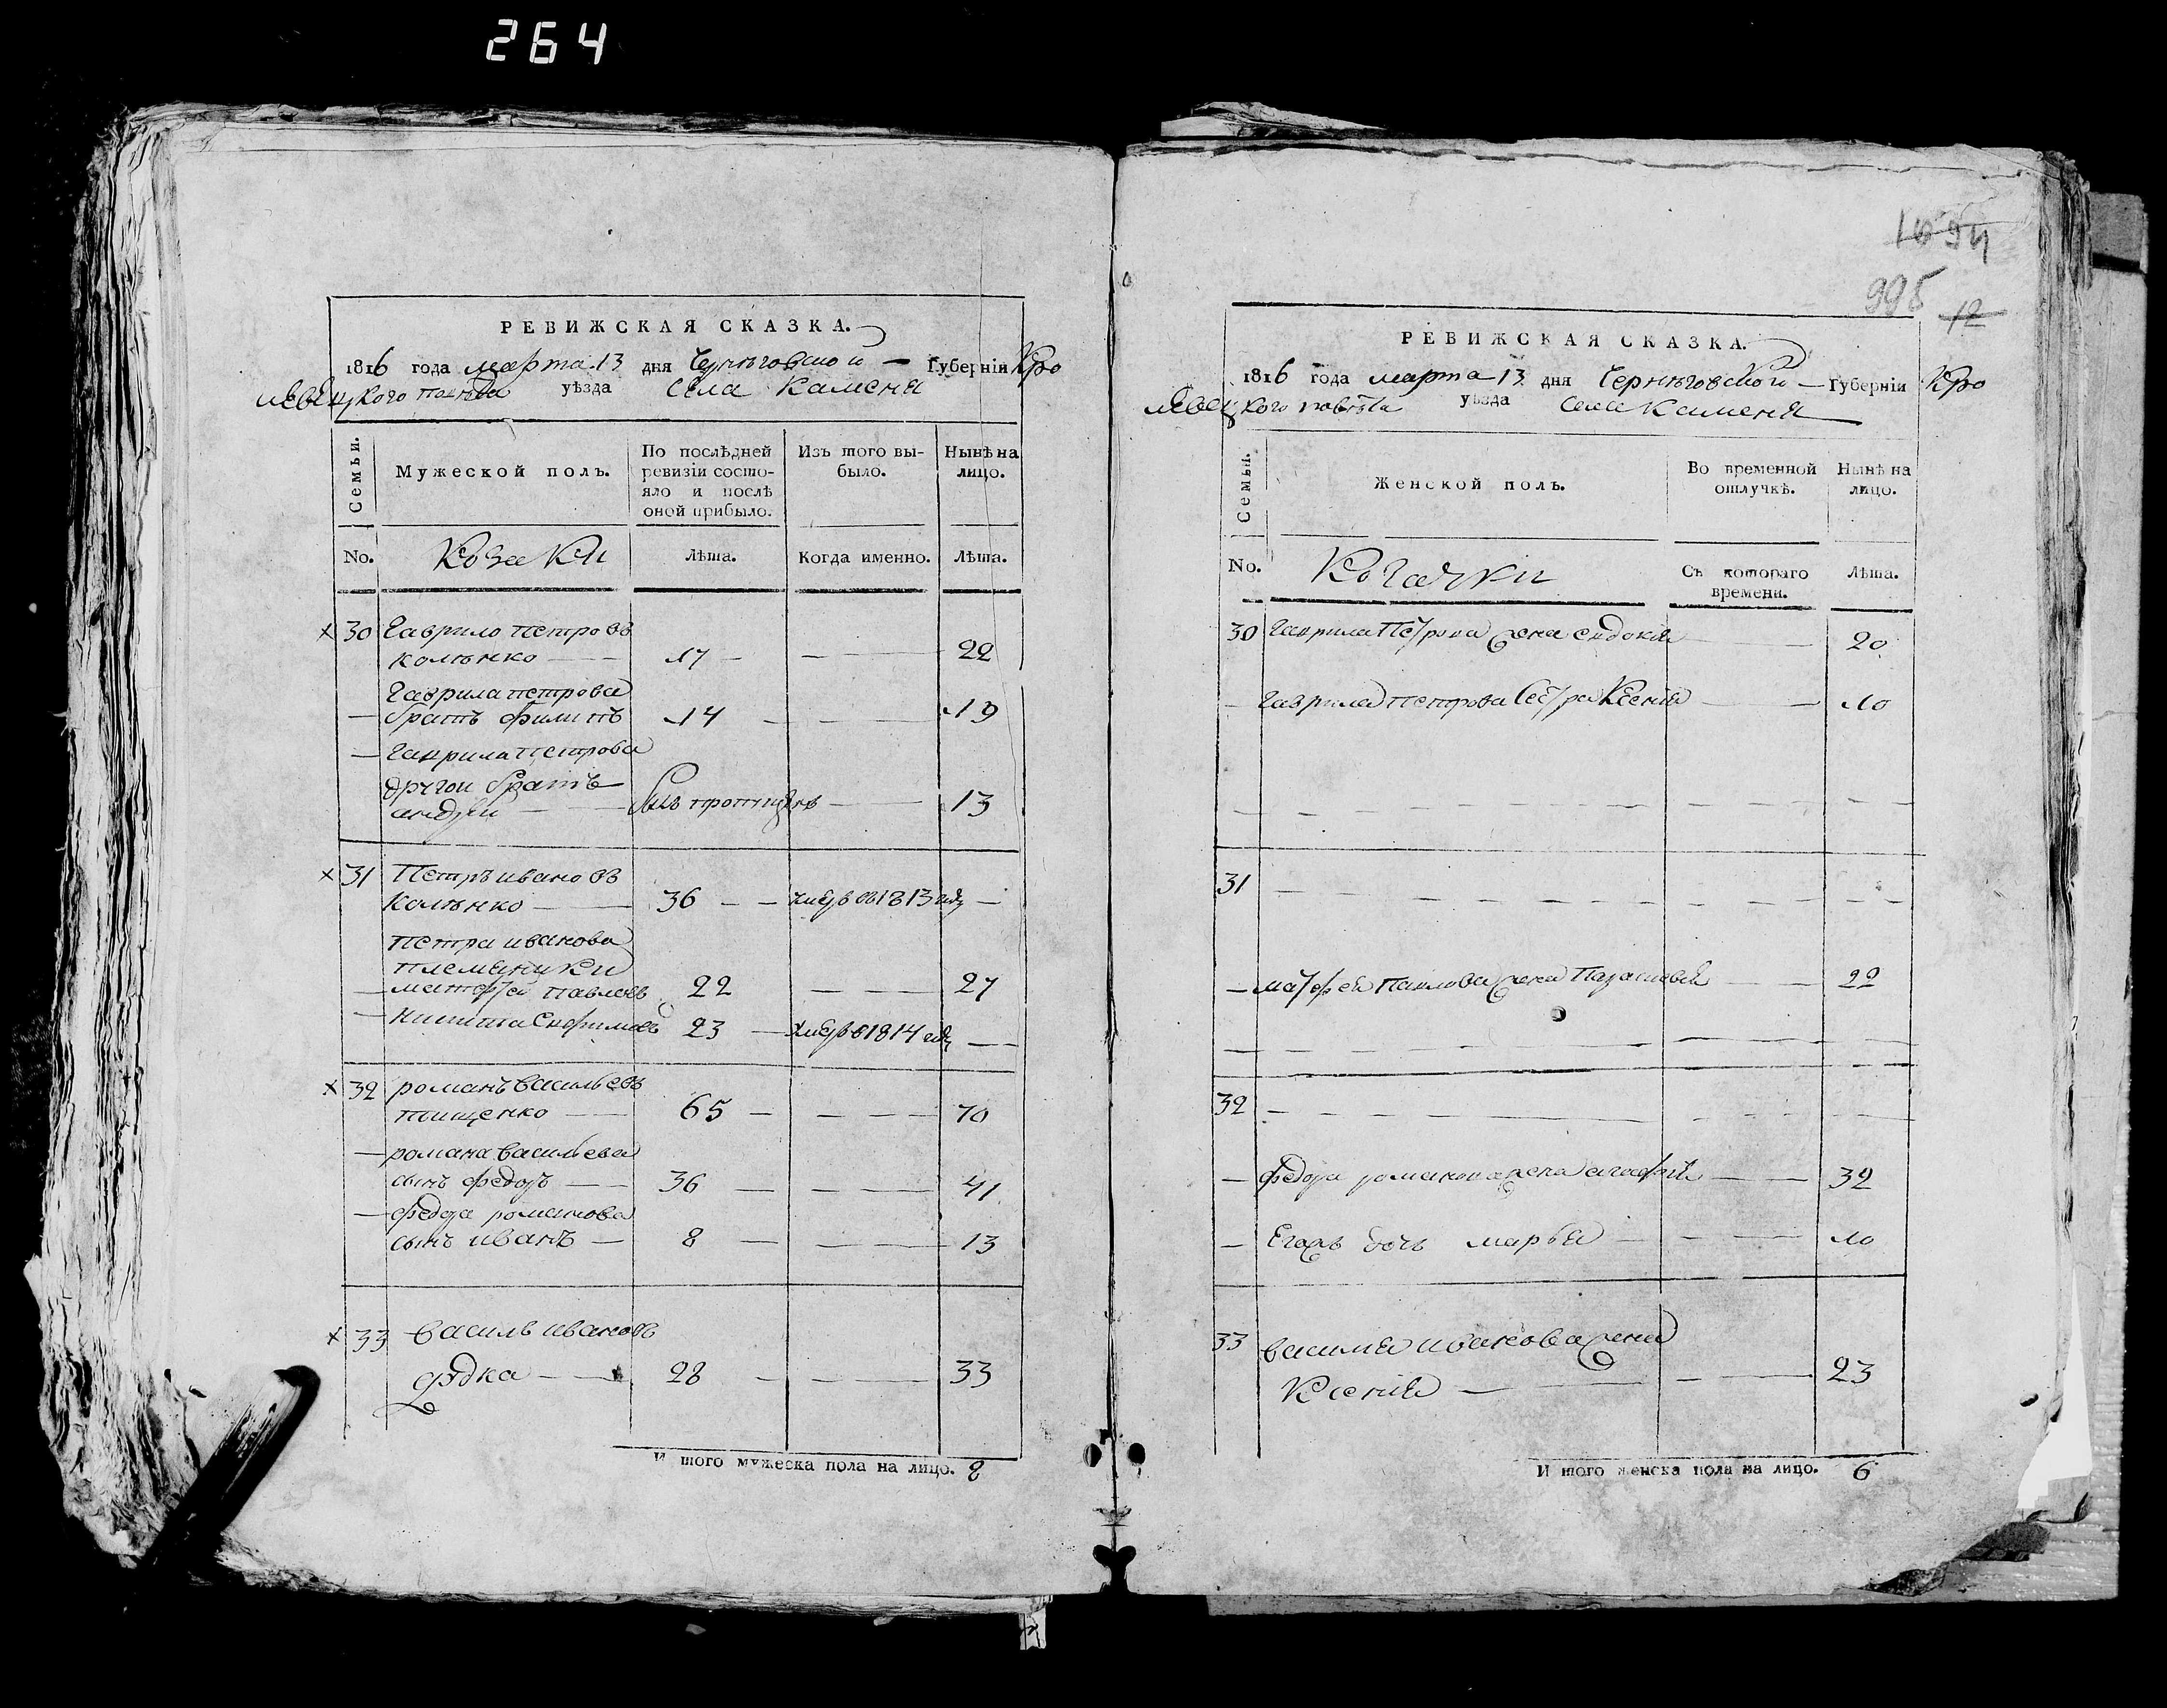 264
РЕВИЖСКАЯ СКАЗКА.
1816 года марта 13 дня Черниговской — Губерніи Кро
левецкого повѣта уѣзда села Каменя
Семьи.
Мужеской полъ.
По послѣдней
ревизіи состо-
яло и послѣ
оной прибыло.
Изъ того вы-
было.
Нынѣ на
лицо.
No. Козаки Лѣта. Когда именно. Лѣта.
х 30 Гаврило петровъ
17 — — — 22
Гаврила петрова
— братъ филипъ 14 — — — 19
— Гаврила петрова
другои братъ
андрей — 13
х 31 Петръ ивановъ
36 — — умеръ въ 1813 году —
петра иванова
племяники
— матфей павловъ 22 — — 27
— никита 23 — умеръ в 1814 году —
х 32 романъ васильевъ
тищенко — 65 — — — 70
— романа васильева
сынъ федоръ — 36 — — — 41
— федора романова
сынъ иванъ — 8 — — — 13
х 33 василь ивановъ
дядка — 28 — — — 33
И того мужеска пола на лицо. 8
1094
995
12
РЕВИЖСКАЯ СКАЗКА.
1816 года марта 13 дня Черниговской — Губерніи Кро
левецкого повѣта уѣзда села Каменя
Семьи.
Женской полъ.
Во временной
отлучкѣ.
Нынѣ на
лицо.
No. Козачки
Съ котораго
времени.
Лѣта.
30 Гаврила Петрова жена евдокия — 20
— Гаврила петрова сестра Ксения — — 10
31
— матфея Павлова жена Параскевия — — 22
32
— федора романова жена агафия — — 32
— Егожъ дочь марья — — — 10
33 василия иванова жена
Ксения — — — 23
И того женска пола на лицо. 6